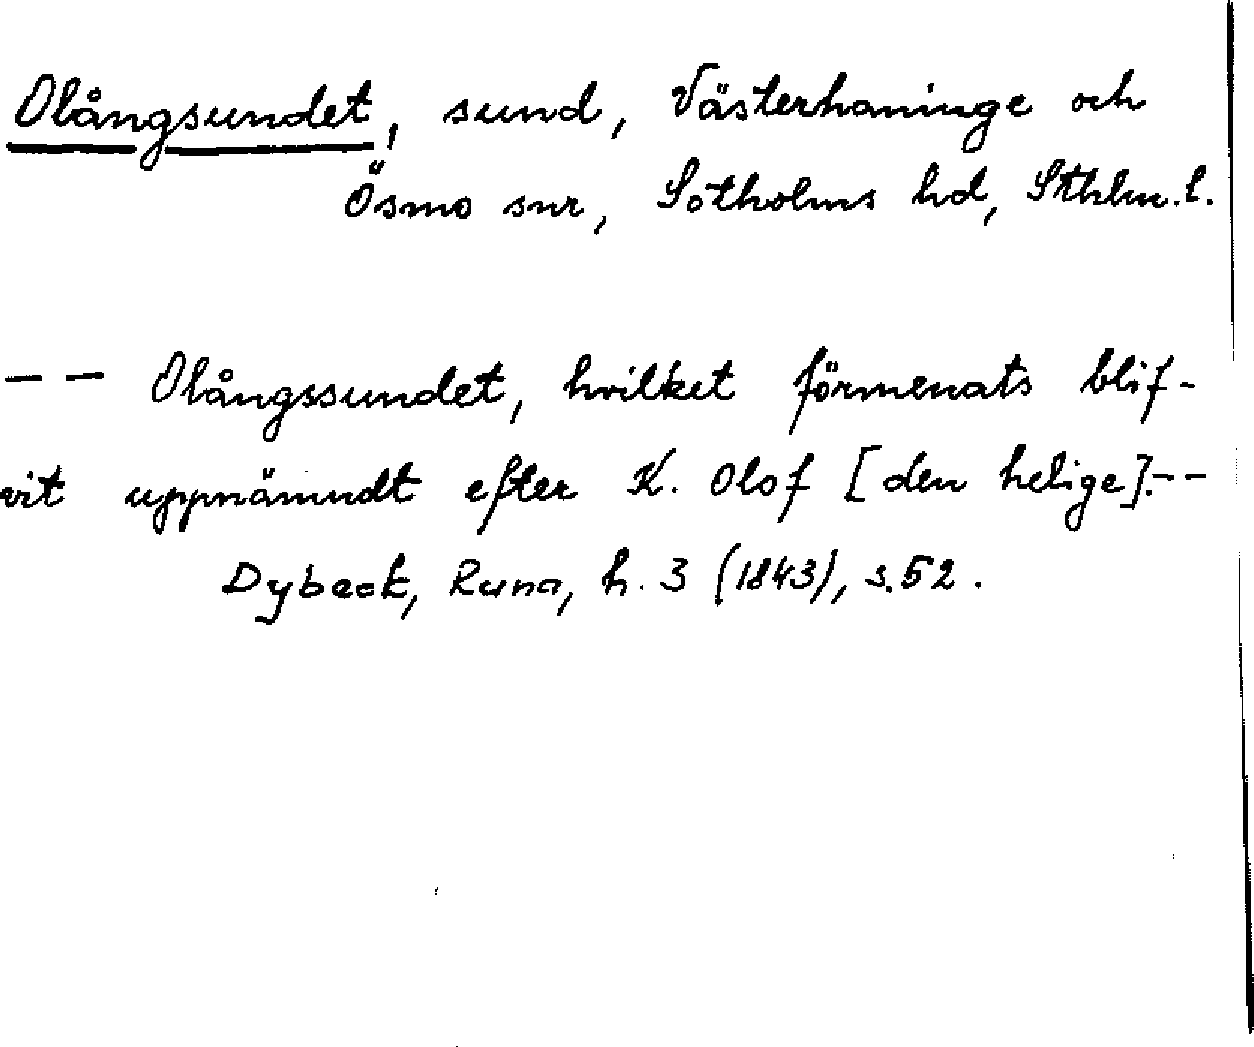 Olångsundet, sund, Västerhaninge och
Ösmo snr, Sotholms hd, Sthlm.l.
-- Olångssundet, hvilket förmenats blif-
vit uppnämndt efter K. Olof [den helige].--
Dybeck, Runa, h. 3 (1843), s.52.